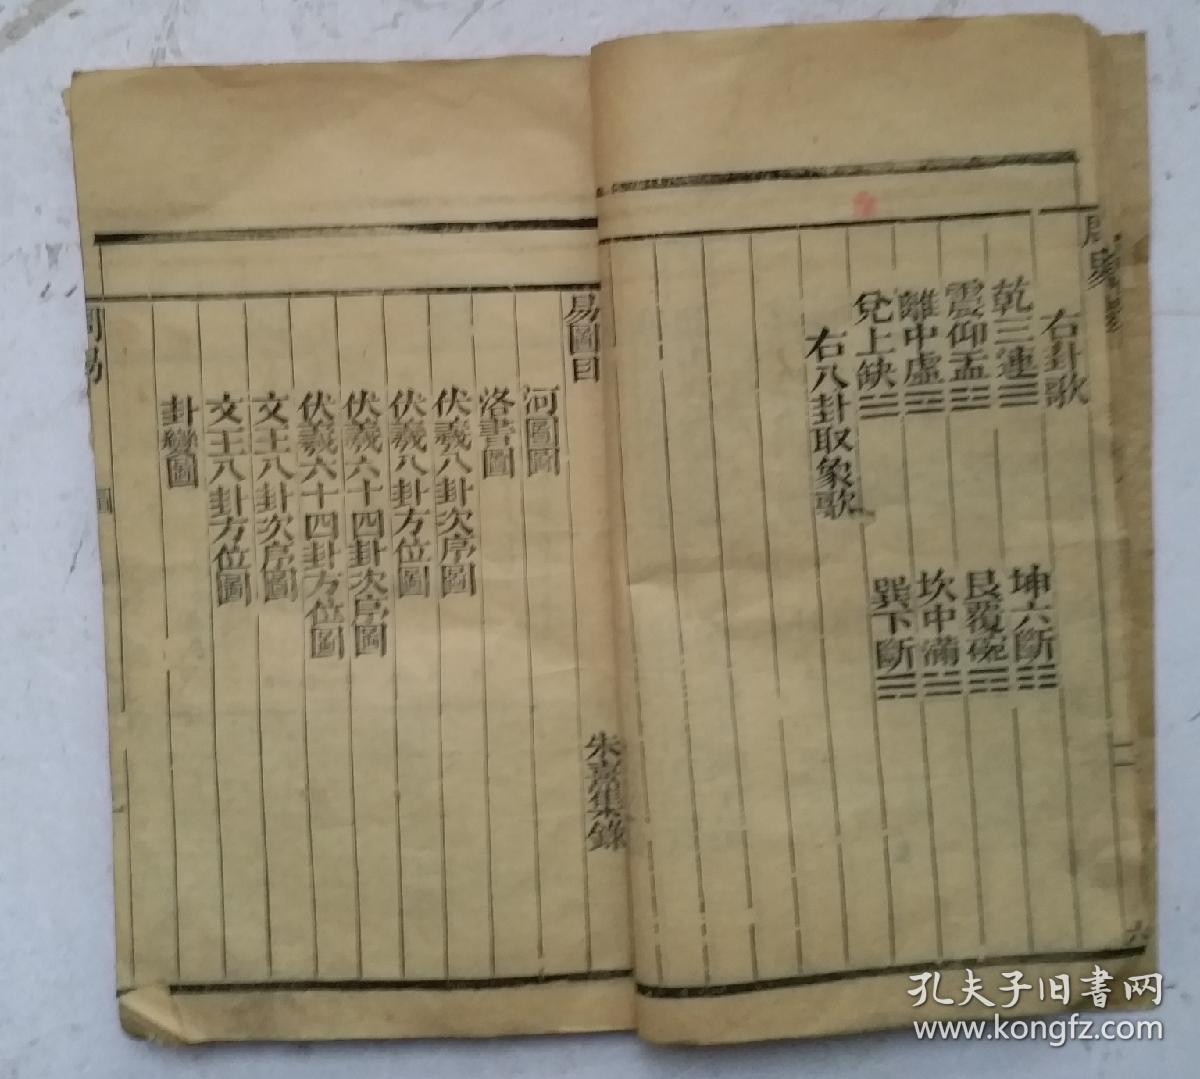 周易
二
六
右卦歌
乾三連☰ 坤六斷☷
震仰盂☳ 艮覆碗☶
離中虛☲ 坎中滿☵
兌上缺☱ 巽下斷☴
右八卦取象歌
易圖目 朱熹集錄
河圖圖
洛書圖
伏羲八卦次序圖
伏羲八卦方位圖
伏羲六十四卦次序圖
伏羲六十四卦方位圖
文王八卦次序圖
文王八卦方位圖
卦變圖
周易
圖
孔夫子旧书网
www.kongfz.com